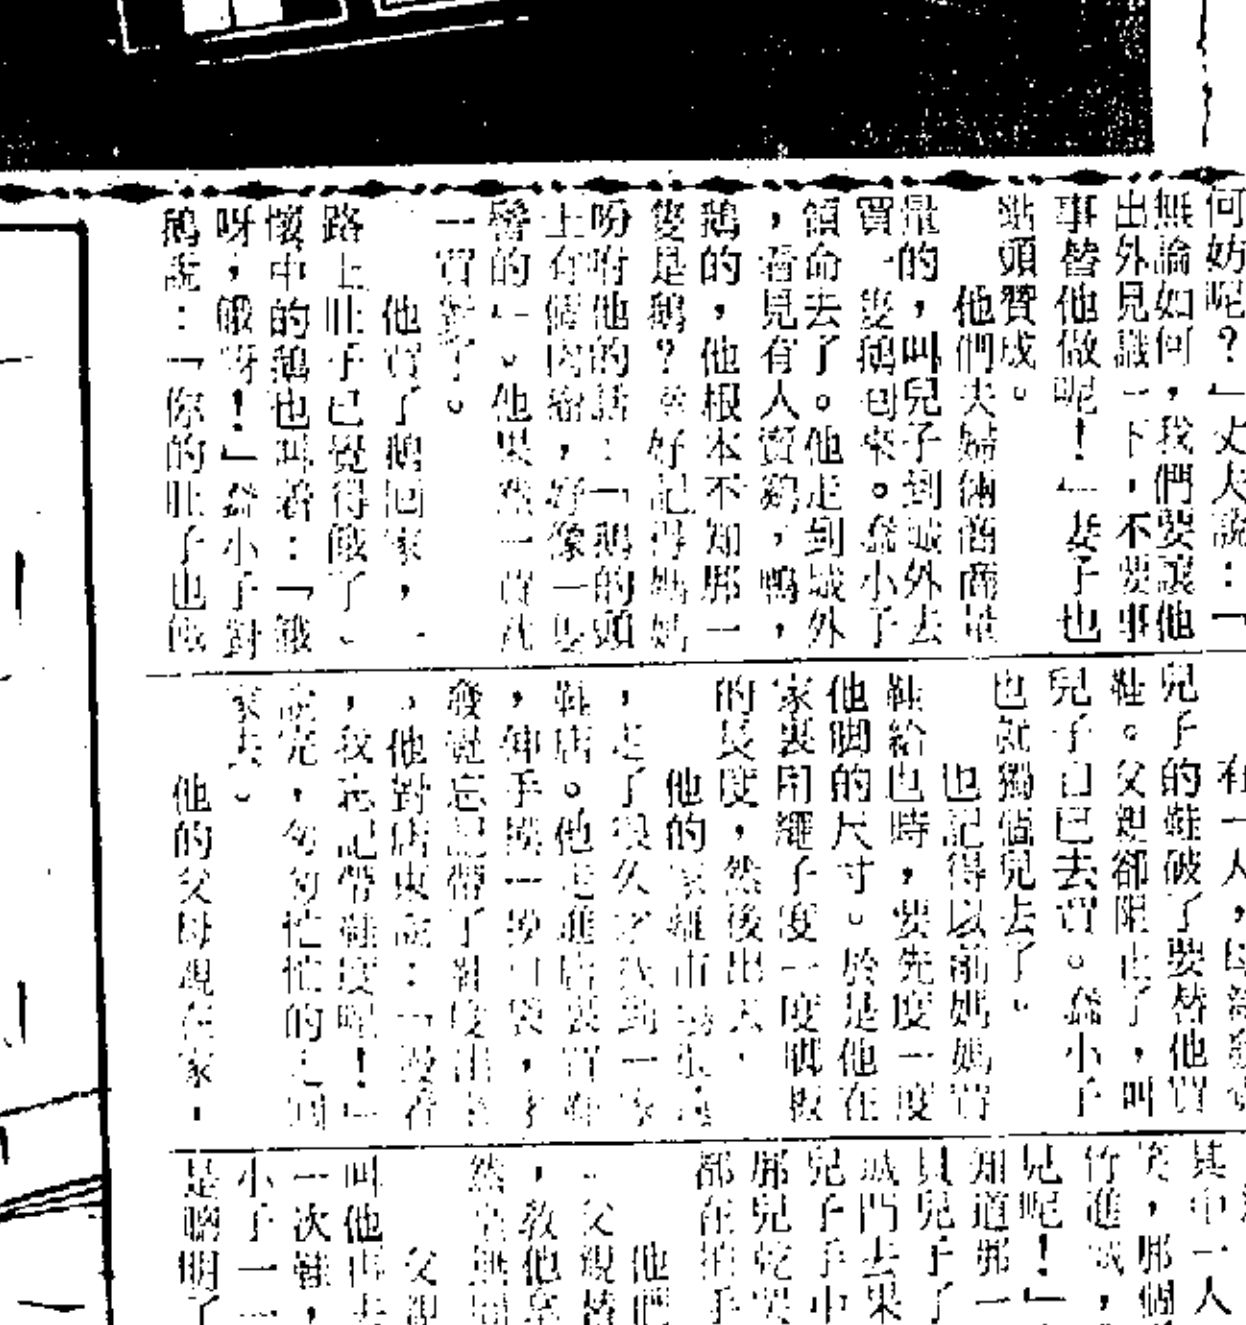 何妨呢？」丈夫說：「
無論如何，我們要讓他
出外見識一下，不要事
事替他做呢！」妻子也
點頭贊成。
他們夫婦倆商商量
量的，叫兒子到城外去
買一隻鵝回來。蠢小子
領命去了。他走到城外
，看見有人賣鷄，鴨，
鵝的，他根本不知那一
隻是鵝？幸好記得媽媽
吩咐他的話：「鵝的頭
上有個肉瘤，好像一隻
髻的」。他果然一買就
一買對了。
他買了鵝回家，一
路上肚子已覺得餓了。
懷中的鵝也叫着：「餓
呀，餓呀！」蠢小子對
鵝說：「你的肚子也餓
有一人，母親
兒子的鞋破了要替他買
鞋。父親卻阻止了，叫
兒子自己去買。蠢小子
也就獨個兒去了。
他記得以前媽媽買
鞋給他時，要先度一度
他脚的尺寸。於是他在
家裏用繩子度一度脚板
的長度，然後出去。
他的家離市場很遠
，走了很久才找到一家
鞋店。他走進店裏買鞋
，伸手摸一摸口袋，才
發覺忘記帶了鞋度出來
。他對店東說：「沒有
，我忘記帶鞋度呢！」
說完，匆匆忙忙的走回
家去。
他的父母親在家，
其中一人
笑，那個
竹進城，
兒呢！」
知道那一
具兒子了
城門去果
兒子手中
那兒乾哭
都在拍手
他把
。父親替
，教他拿
然
父親
叫他再去
一次鞋，
小子一一
是聰明了